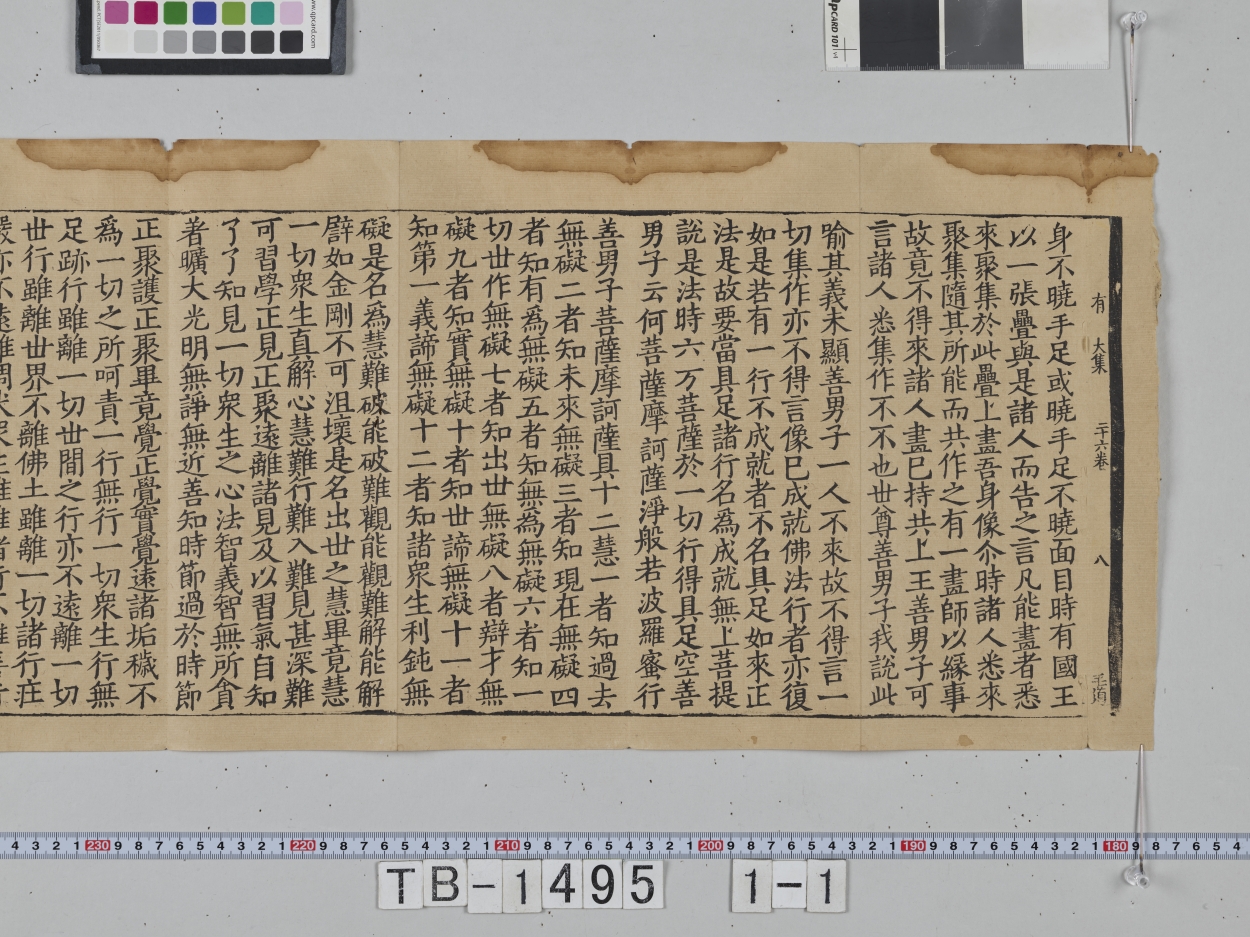 有 大集 三十六卷 八
身不曉手足或曉手足不曉面目時有國王
以一張疊與是諸人而告之言凡能畫者悉
來聚集於此疊上畫吾身像尒時諸人悉來
聚集隨其所能而共作之有一畫師以緣事
故竟不得來諸人畫已持共上王善男子可
言諸人悉集作不不也世尊善男子我說此
喻其義未顯善男子一人不來故不得言一
切集作亦不得言像已成就佛法行者亦復
如是若有一行不成就者不名具足如來正
法是故要當具足諸行名為成就無上菩提
說是法時六万菩薩於一切行得具足空善
男子云何菩薩摩訶薩淨般若波羅蜜行
善男子菩薩摩訶薩具十二慧一者知過去
無礙二者知未來無礙三者知現在無礙四
者知有為無礙五者知無為無礙六者知一
切世作無礙七者知出世無礙八者辯才無
礙九者知實無礙十者知世諦無礙十一者
知第一義諦無礙十二者知諸衆生利鈍無
礙是名為慧難破能破難觀能觀難解能解
譬如金剛不可沮壞是名出世之慧畢竟慧
一切衆生直解心慧難行難入難見甚深難
可習學正見正聚遠離諸見及以習氣自知
了了知見一切衆生之心法智義智無所貪
著曠大光明無諍無近善知時節過於時節
正聚護正聚畢竟覺正覺實覺遠諸垢穢不
為一切之所呵責一行無行一切衆生行無
足跡行雖離一切世間之行亦不遠離一切
世行雖離世界不離佛土雖離一切諸行莊
QPCARD 101 v4
www.qpcard.com
4 3 2 1 230 9 8 7 6 5 4 3 2 1 220 9 8 7 6 5 4 3 2 1 210 9 8 7 6 5 4 3 2 1 200 9 8 7 6 5 4 3 2 1 190 9 8 7 6 5 4 3 2 1 180 9 8 7 6 5 4
TB-1495 1-1